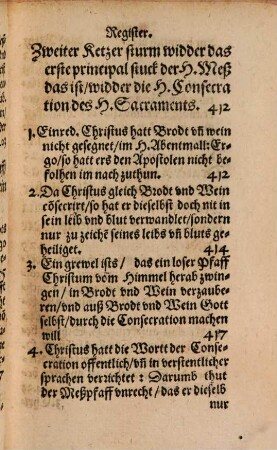 Register.
Zweiter Ketzer sturm widder das
erste principal stuck der H. Meß
das ist/ widder die H. Consecra
tion des H. Sacraments. 412
1. Einred. Christus hatt Brodt vn̄ wein
nicht gesegnet/ im H. Abentmall: Er-
go/ so hatt ers den Apostolen nicht be-
folhen im nach zuthun. 412
2. Da Christus gleich Brodt vnd Wein
cōsecrirt/ so hat er dieselbst doch nit in
sein leib vnd blut verwandlet/ sondern
nur zu zeichē seines leibs vn̄ bluts ge-
heiliget. 414
3. Ein grewel ists/ das ein loser Pfaff
Christum vom Himmel herab zwin-
gen/ in Brodt vnd Wein verzaube-
ren/ vnd auß Brodt vnd Wein Gott
selbst/ durch die Consecration machen
will 417
4. Christus hatt die Wortt der Conse-
cration offentlich/ vn̄ in verstentlicher
sprachen verrichtet: Darumb thut
der Meßpfaff vnrecht/ das er dieselb
nur